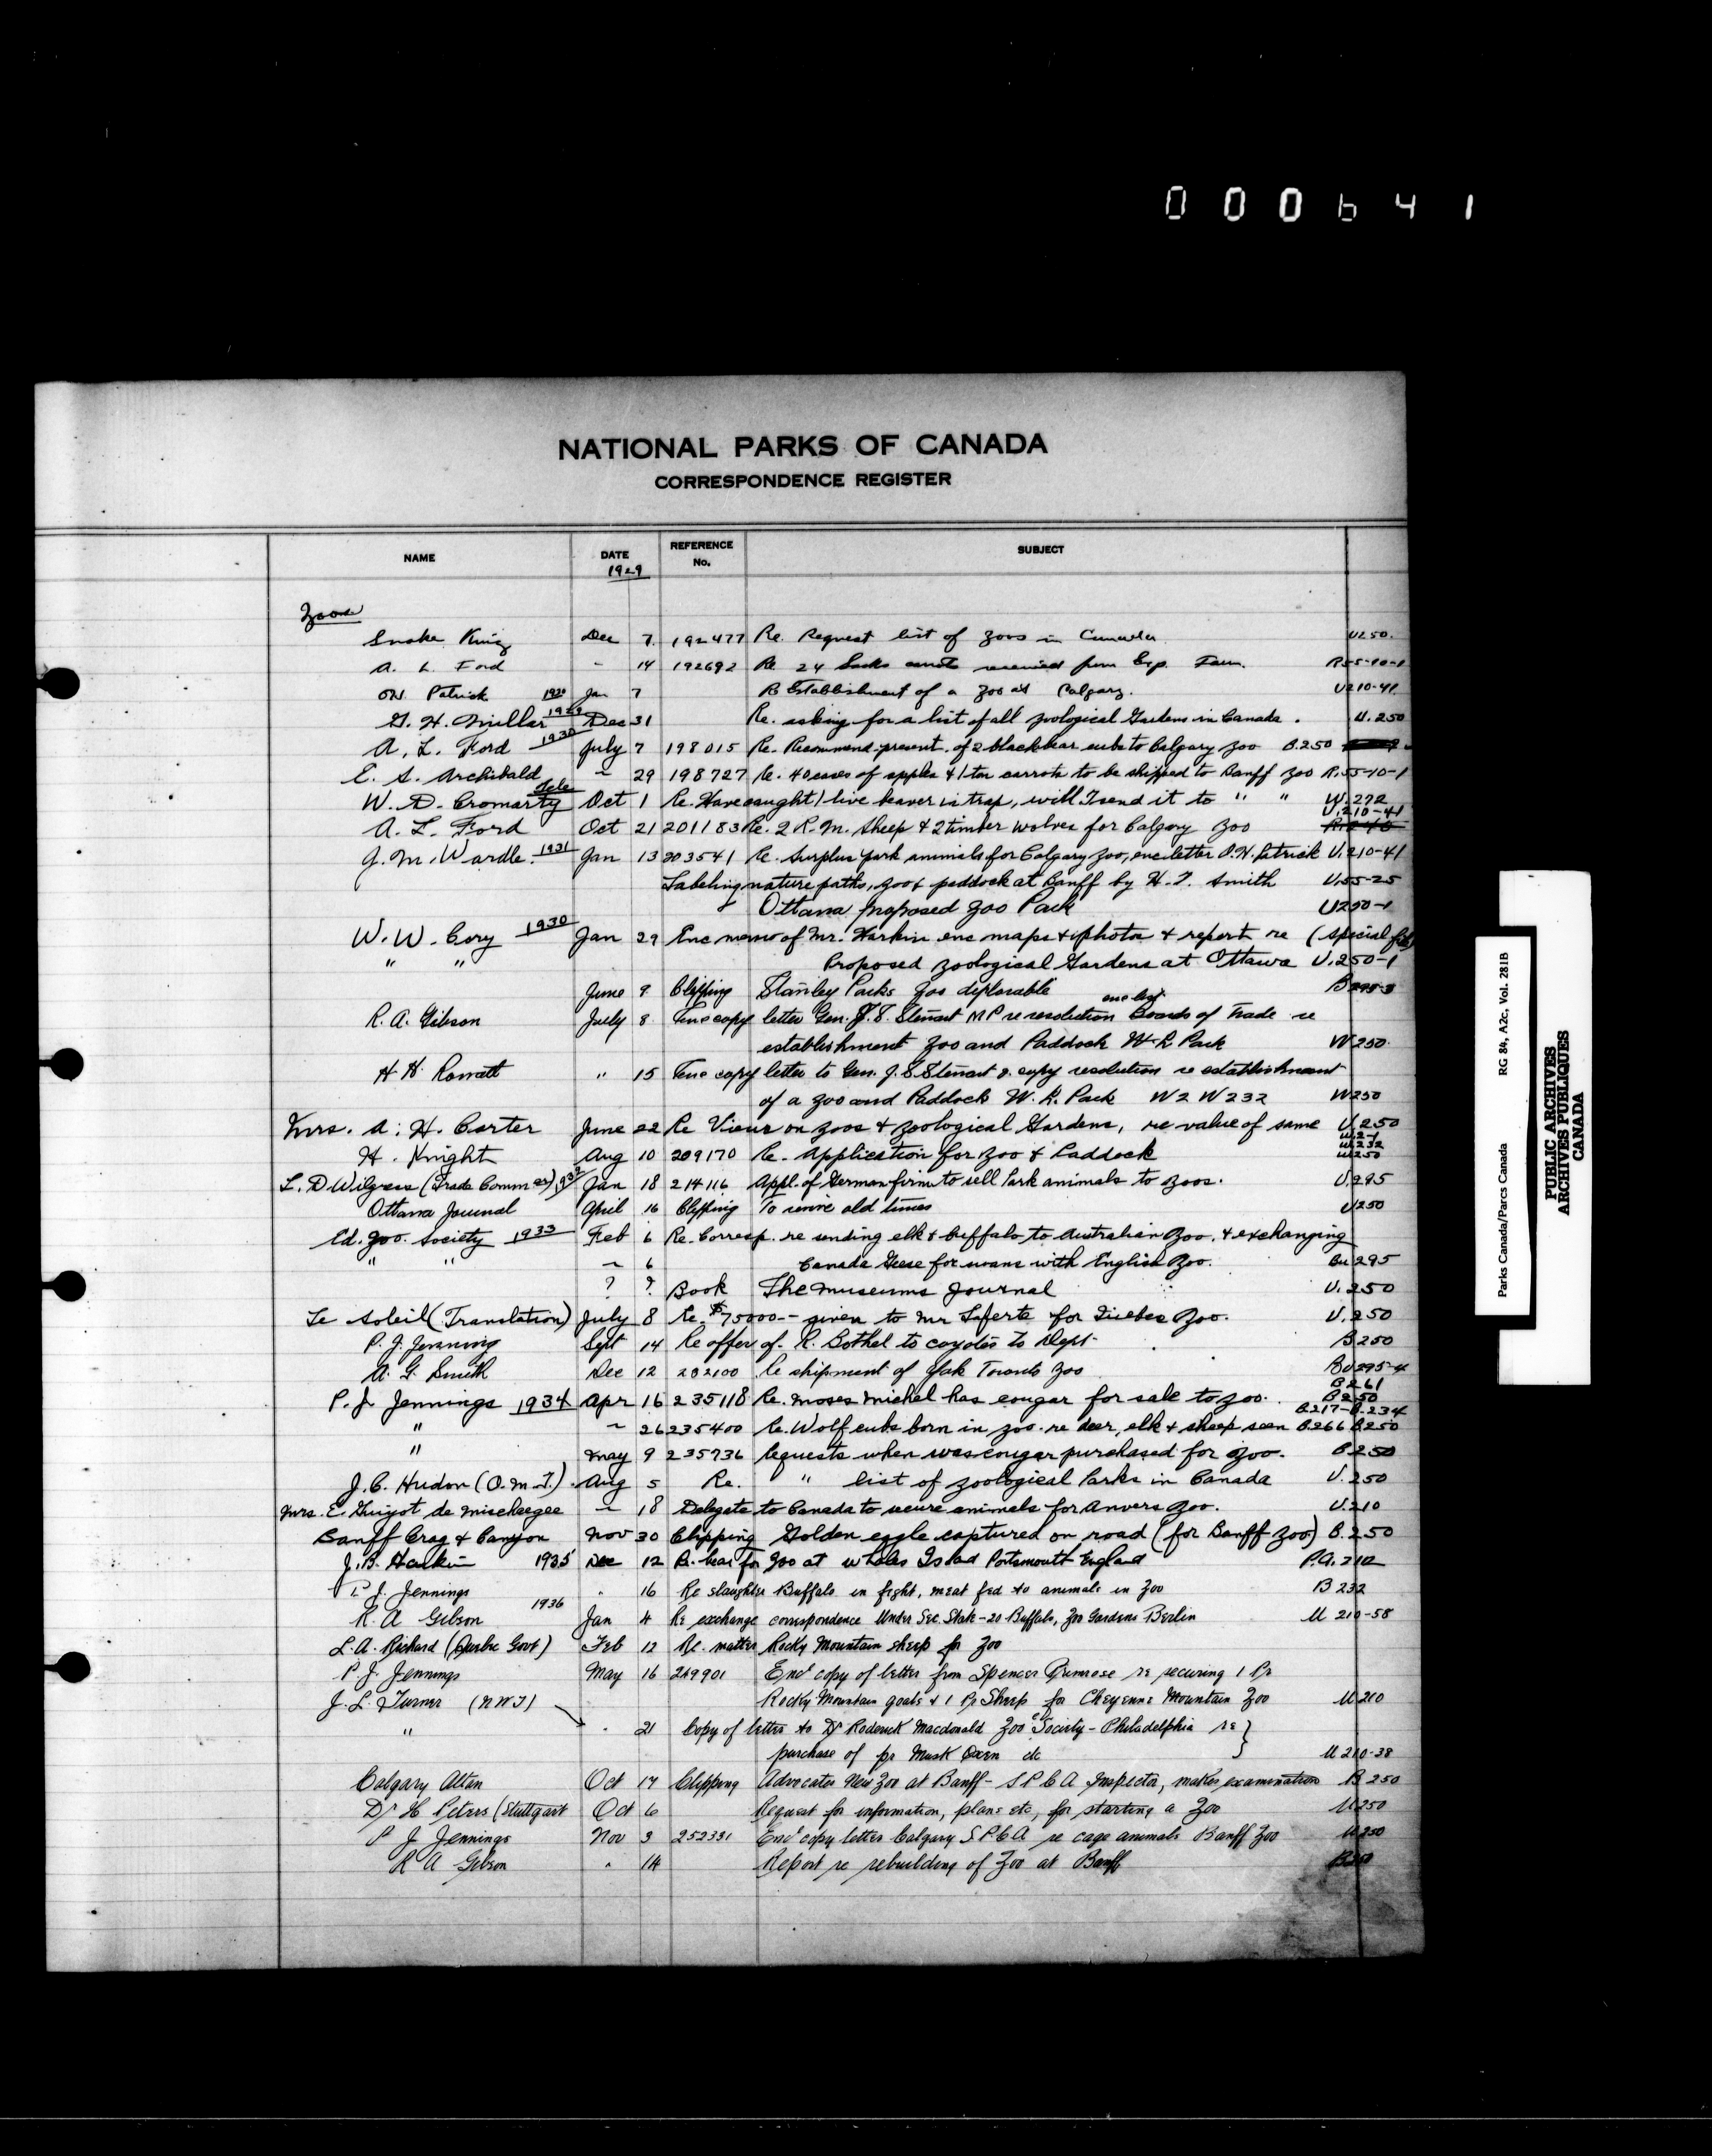 000641
NATIONAL PARKS OF CANADA
CORRESPONDENCE REGISTER
NAME DATE REFERENCE No. SUBJECT
1929
Zoos
Snake King Dec 7 192477 Re. Request list of zoos in Canada U250.
A. L. Ford " 14 192692 Re 24 Sacks received from Exp. Farm. R55-10-1
O.H. Patrick 1930 Jan 7 Re Establishment of a Zoo at Calgary. U210-41
G. H. Millar 1929 Dec 31 Re. asking for a list of all zoological Gardens in Canada. U.250
A. L. Ford 1930 July 7 198015 Re. Recommend. present. of 2 black bear cubs to Calgary Zoo B.250
E. S. Archibald " 29 198727 Re. 40 cases of apples & 1 ton carrots to be shipped to Banff Zoo R.55-10-1
W. D. Cromarty Tele Oct 1 Re. Have caught 1 live beaver in trap, will I send it to " " W.272
A. L. Ford Oct 21 201183 Re. 2 R.M. Sheep & 2 timber wolves for Calgary Zoo U.210-41
J. M. Wardle 1931 Jan 13 203541 Re. Surplus park animals for Calgary Zoo, enc letter O.H. Patrick U.210-41
Labeling nature paths, zoo & paddock at Banff by H. I. Smith U.55-25
Ottawa proposed Zoo Park U250-1
W. W. Cory 1930 Jan 29 Enc memo of Mr. Harkin enc maps & photos & report re (special file)
" " Proposed Zoological Gardens at Ottawa U.250-1
June 9 Clipping Stanley Parks Zoo deplorable
R. A. Gibson July 8 Enc copy letter Gen. J. S. Stewart MP re resolution Boards of Trade re
establishment Zoo and Paddock W-L Park W250.
H H. Rowatt " 15 Enc copy letter to Gen. J. S. Stewart & copy resolution re establishment
of a Zoo and Paddock W. L. Park W2 W232 W250
Mrs. A. H. Carter June 22 Re Views on zoos & zoological Gardens, re value of same U.250
H. Knight Aug 10 209170 Re. Application for Zoo & Paddock W.2-1 W232 W250
L. D Wilgress (Trade Commer) 1932 Jan 18 214116 Appl. of German firm to sell Park animals to zoos. U.295
Ottawa Journal April 16 Clipping To revive old times U250
Ed. Zoo. Society 1933 Feb 6 Re. Corresp. re sending elk & buffalo to Australian Zoo, & exchanging
" " " 6 Canada Geese for swans with English Zoo. Bu295
? ? Book The Museums Journal U.250
Le Soleil (Translation) July 8 Re. $75000-- given to Mr Laferte for Quebec Zoo. U.250
P. J. Jennings Sept 14 Re offer of R. Bothel to coyotes to Dept. B250
A. G. Smith Dec 12 Re shipment of Yak Toronto Zoo BU295-4
P. J. Jennings 1934 Apr 16 235118 Re. Moses Michel has cougar for sale to Zoo. B261 B250
" " 26 235400 Re. Wolf cubs born in zoo. re deer, elk & sheep seen B217-B.234 B266 B250
" May 9 235736 Requests when was cougar purchased for Zoo. B250
J. C. Hudon (O.M.I.) Aug 5 Re. " list of Zoological Parks in Canada U.250
Mrs. E. Guyot de " 18 Delegate to Canada to secure animals for Anvers Zoo. U.210
Banff Crag & Canyon Nov 30 Clipping Golden eagle captured on road (for Banff Zoo) B.250
J. B. Harkin 1935 Dec 12 Re. bear for Zoo at Whales Island Portsmouth England P.A. 212
P. J. Jennings " 16 Re slaughter Buffalo in fight, meat fed to animals in Zoo B 232
R. A Gibson 1936 Jan 4 Re exchange correspondence Under Sec. State - 20 Buffalo, Zoo Gardens Berlin U 210-58
L. A. Richard (Quebec Govt) Feb 12 Re. matter Rocky Mountain sheep for Zoo
P. J. Jennings May 16 249901 Encl copy of letter from Spencer Penrose re securing 1 Pr
J. L. Turner (NWT) Rocky Mountain goats & 1 Pr Sheep for Cheyenne Mountain Zoo U 210
" " 21 Copy of letter to Dr Roderick Macdonald Zoo Society - Philadelphia re
purchase of pr Musk Oxen etc U 210-38
Calgary Altan Oct 17 Clipping Advocates New Zoo at Banff - S P C A Inspector, makes examination B 250
Dr H Peters (Stuttgart Oct 6 Request for information, plans etc, for starting a Zoo U250
P J Jennings Nov 3 252331 Encl copy letter Calgary S P C A re cage animals Banff Zoo U250
R A Gibson " 14 Report re rebuilding of Zoo at Banff B250
Parks Canada/Parcs Canada RG 84, A2c, Vol. 281B
PUBLIC ARCHIVES
ARCHIVES PUBLIQUES
CANADA